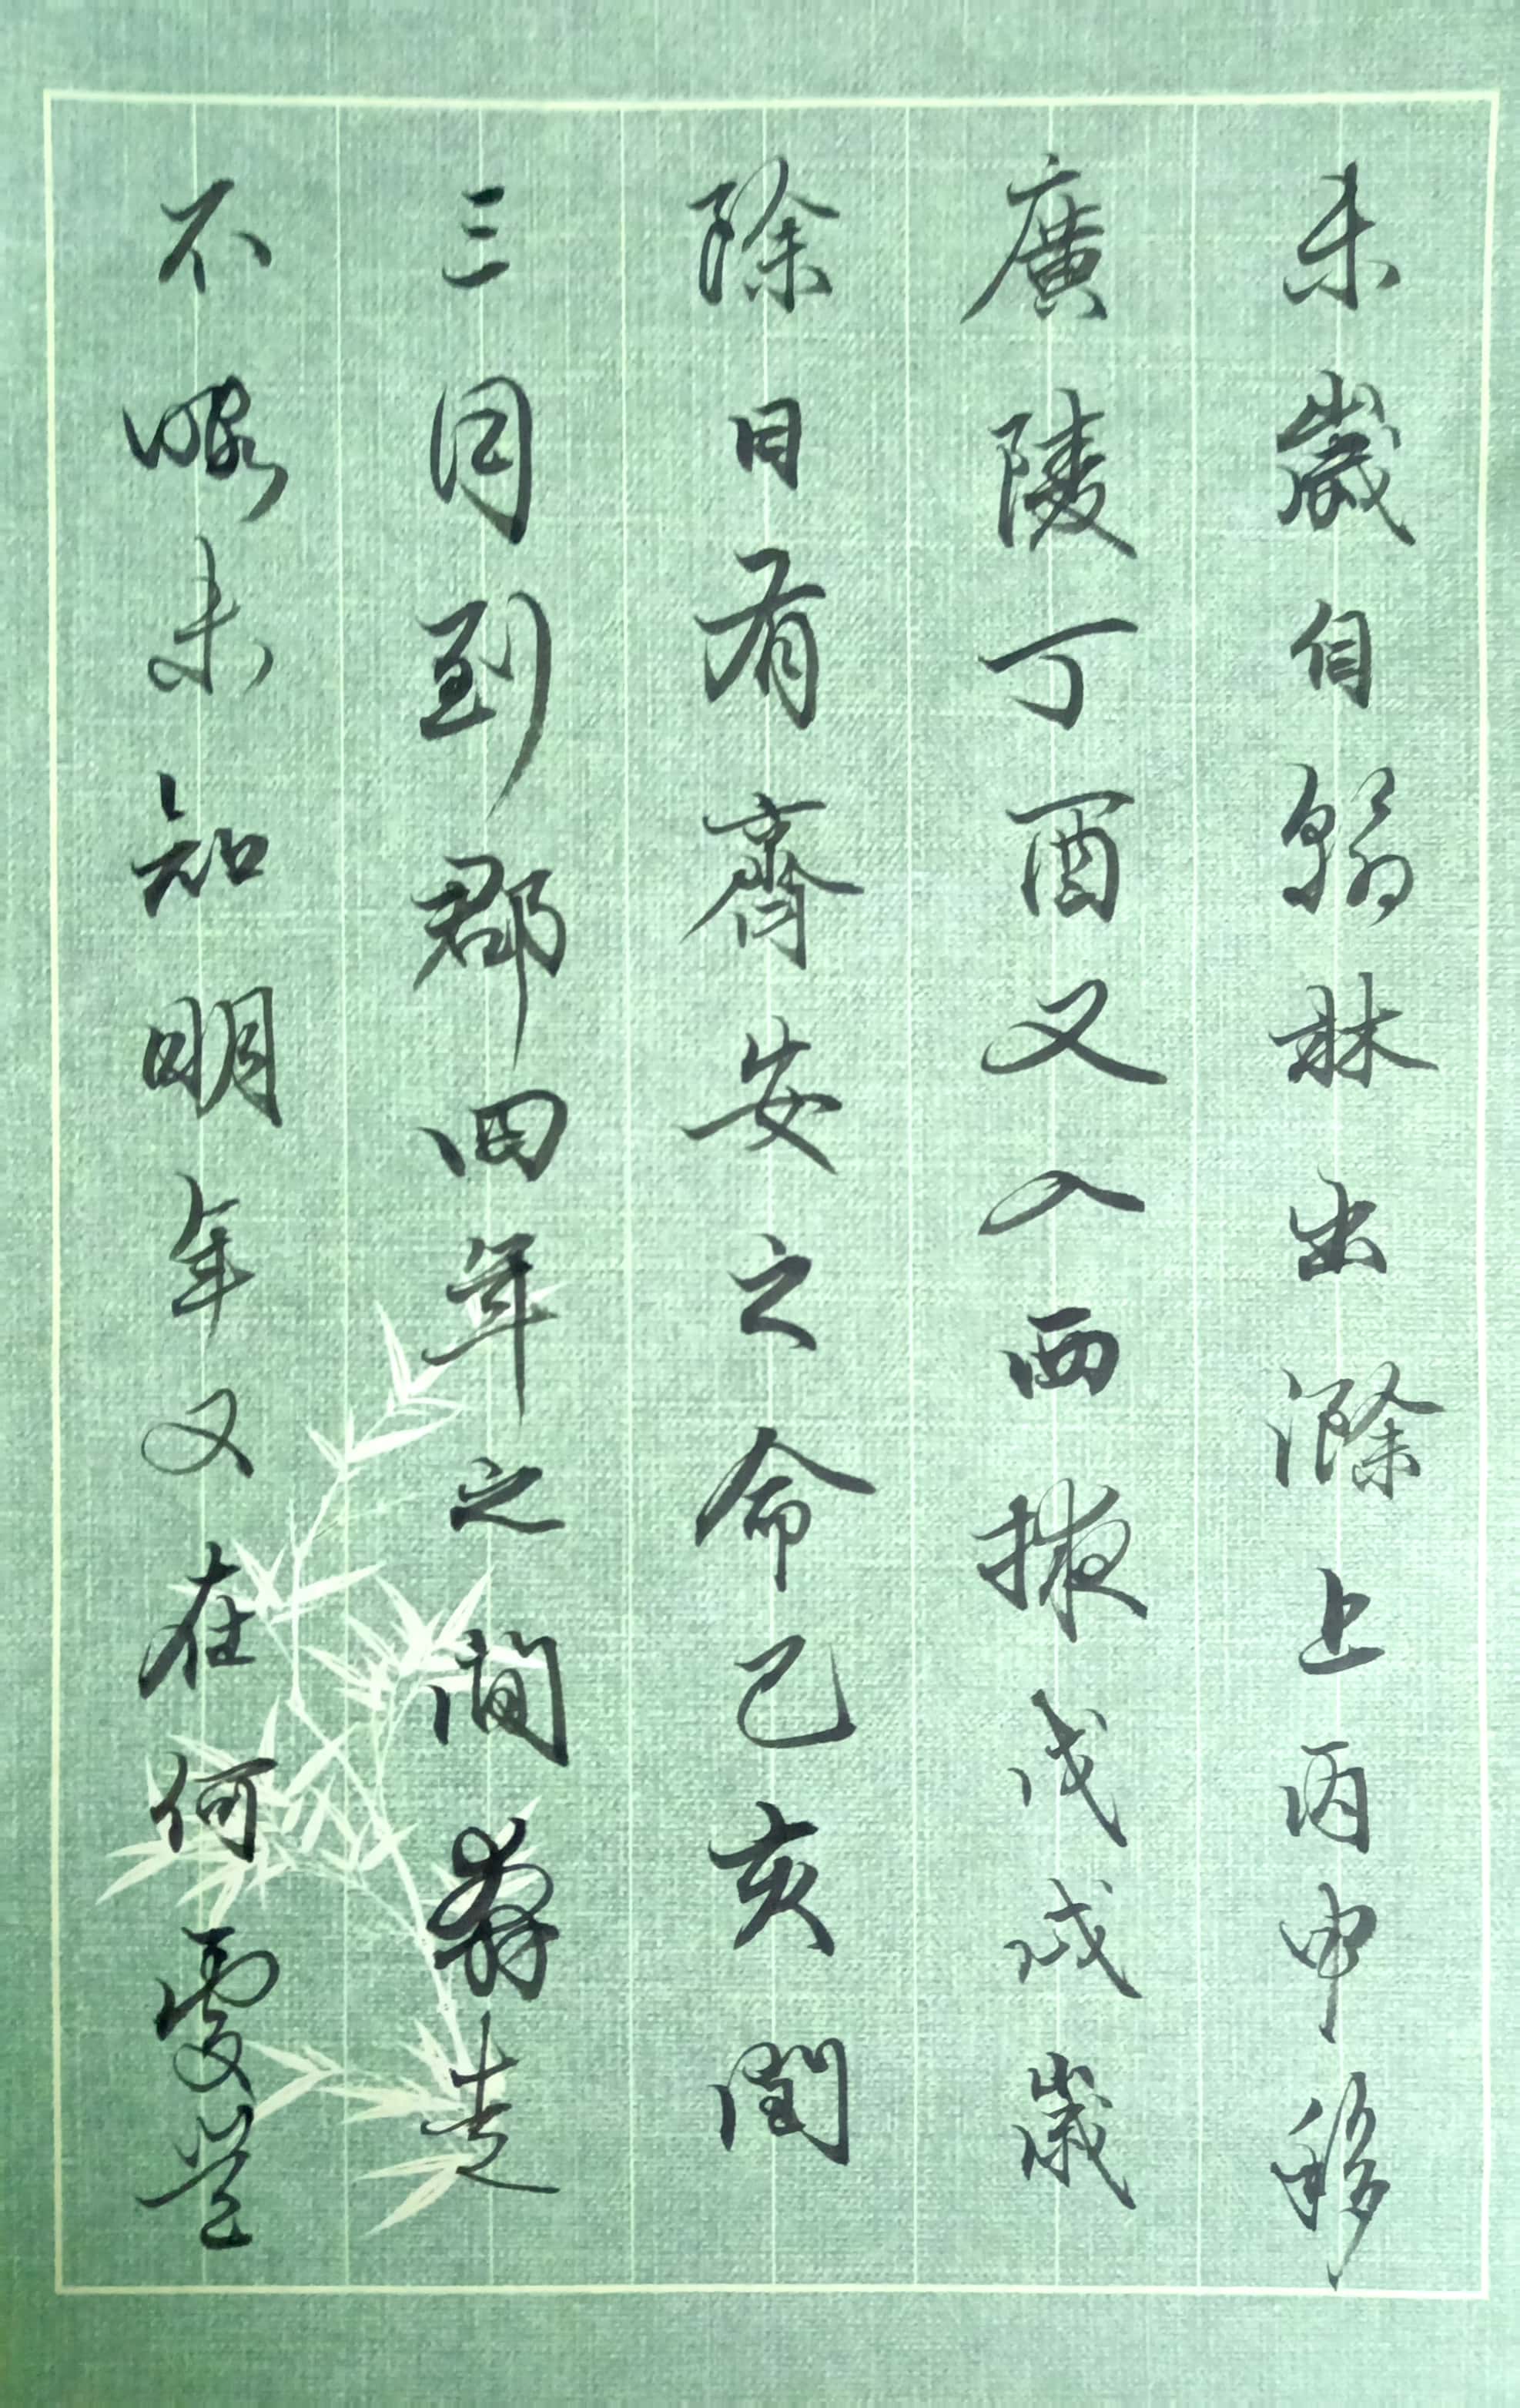 未歲自翰林出滁上丙申移
廣陵丁酉又入西掖戊戌歲
除日有齊安之命己亥閏
三月到郡四年之間奔走
不暇未知明年又在何處豈